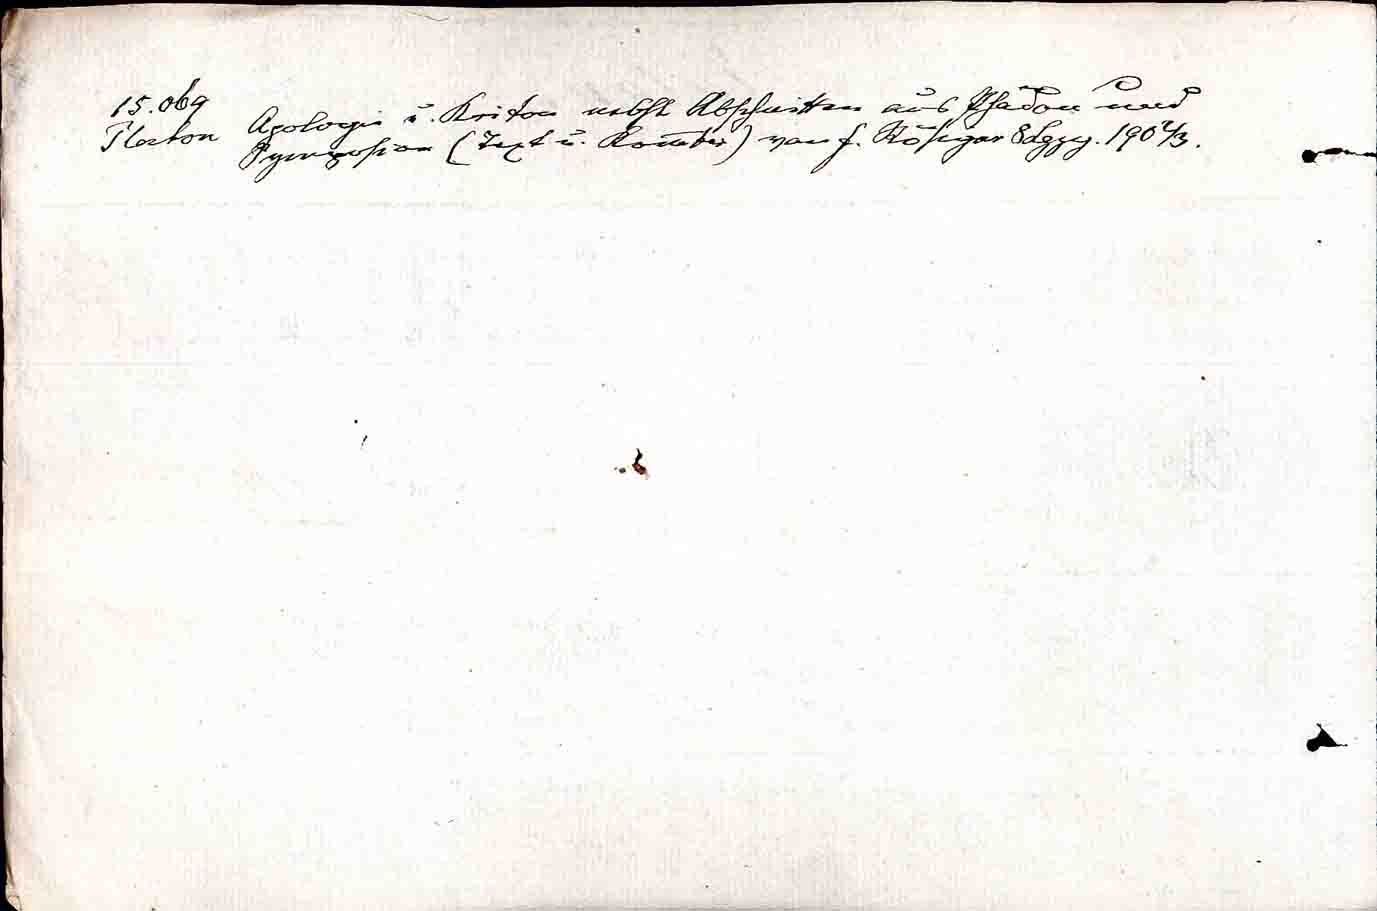 15.069
Platon Apologie u. Kriton nebst Abschnitten aus Phädon und
Symposion (Text u. Kommentar) von F. Rösiger 1902/3.